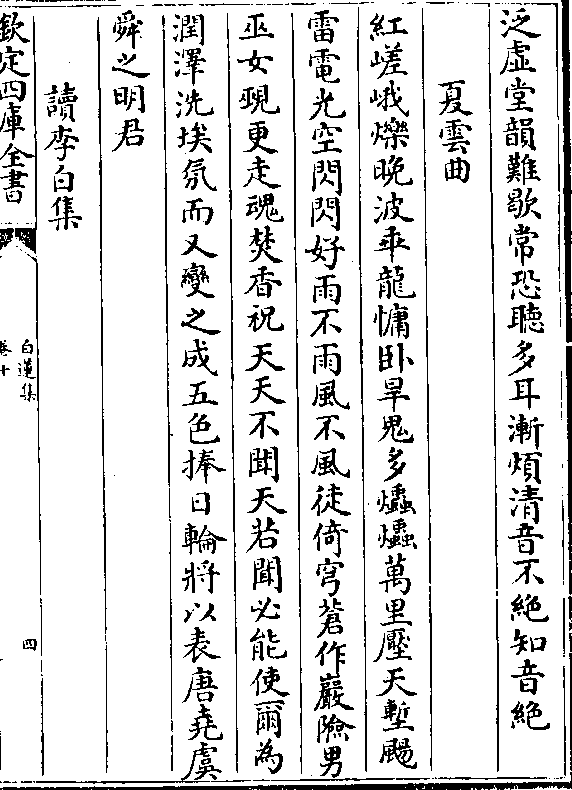 泛虛堂韻難歇常恐聽多耳漸煩清音不絕知音絕
夏雲曲
紅嵯峨爍晚波乖龍慵卧旱鬼多爞爞萬里壓天塹颺
雷電光空閃閃好雨不雨風不風徒倚穹蒼作巖險男
巫女覡更走魂焚香祝天天不聞天若聞必能使爾為
潤澤洗埃氛而又變之成五色捧日輪將以表唐堯虞
舜之明君
讀李白集
欽定四庫全書
白蓮集
卷十
四